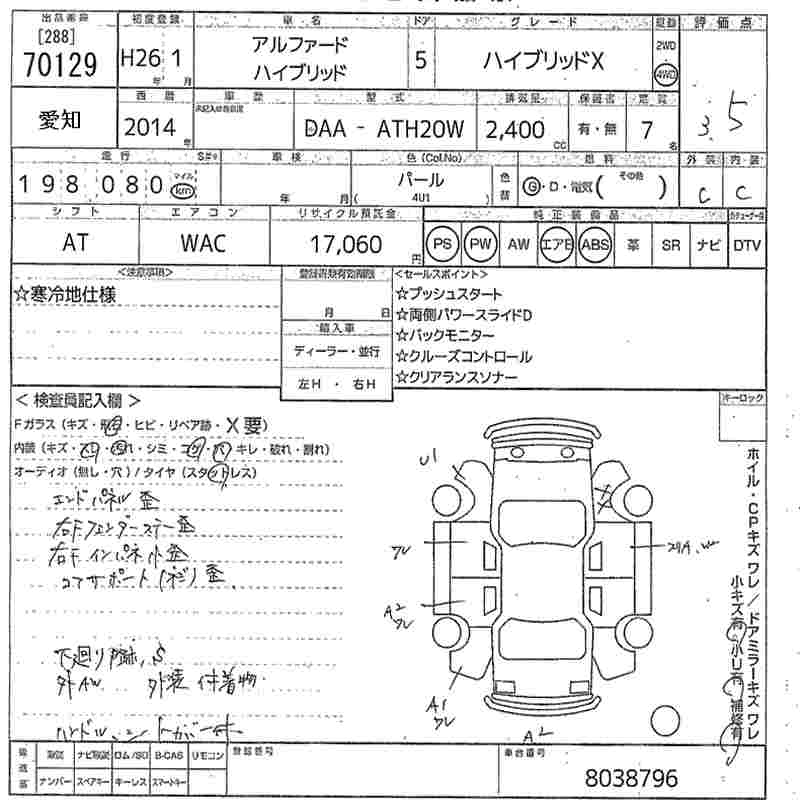 出品番号 初度登録 車名 ドア グレード 駆動 評価点
[288]
70129
H26年 1月
アルファード
ハイブリッド
5
ハイブリッドX
2WD
4WD
3.5
愛知
西暦 車歴 型式 排気量 保証書 定員
2014年
DAA - ATH20W
2,400 CC
有・無
7名
走行 車検 色(Col,No) 燃料 外装 内装
198,080 マイル km
年 月
パール
( 4U1 )
色替
G・D・電気( その他 )
C C
シフト エアコン リサイクル預託金 純正装備品
AT
WAC
17,060円
PS PW AW エアB ABS 革 SR ナビ DTV
<注意事項>
☆寒冷地仕様
登録書類有効期限
月 日
輸入車
ディーラー・並行
左H・右H
<セールスポイント>
☆プッシュスタート
☆両側パワースライドD
☆バックモニター
☆クルーズコントロール
☆クリアランスソナー
キーロック
<検査員記入欄>
Fガラス(キズ・飛石・ヒビ・リペア跡・X要)
内装(キズ・スリ・汚れ・シミ・コゲ・穴・キレ・破れ・割れ)
オーディオ(無し・穴)/タイヤ(スタッドレス)
エンドパネル 歪
右Fフェンダーステー歪
右Fインパネル歪
コアサポート(ネジ)歪
外AW 外装 付着物
U1
ワレ
A2
ワレ
A1
ワレ
A2
ホイル・CPキズ ワレ/ドアミラーキズ ワレ
小キズ有 小U有 補修有
取説 ナビ取説 ロム/SD B-CAS リモコン
ナンバー スペアキー キーレス スマートキー
登録番号
車台番号
8038796